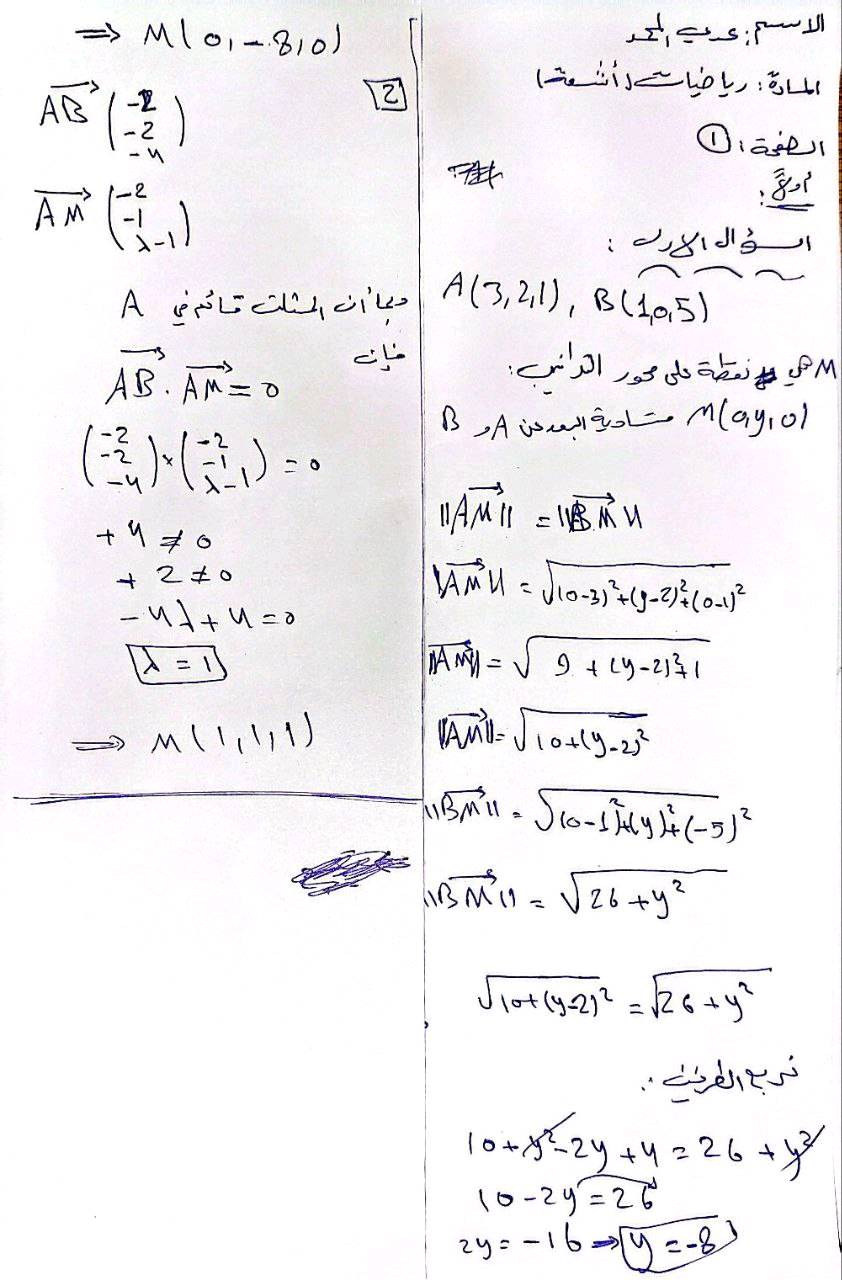 الاسم: عدي المحمد
المادة: رياضيات (أشعة)
الصفحة: ①
أولاً:
السؤال الأول:
A(3,2,1), B(1,0,5)
M هي نقطة على محور التراتيب:
M(0,y,0) متساوية البعد عن A و B
||AM|| = ||BM||
||AM|| = √(0-3)²+(y-2)²+(0-1)²
||AM|| = √9 + (y-2)²+1
||AM|| = √10+(y-2)²
||BM|| = √(0-1)²+(y)²+(-5)²
||BM|| = √26+y²
√10+(y-2)² = √26+y²
نربع الطرفين:
10+y²-2y+4 = 26+y²
10-2y = 26
2y = -16 → y = -8
⇒ M(0,-8,0)
2
AB (-2
-2
-4)
AM (-2
-1
λ-1)
وبما أن المثلث قائم في A
فإن
AB . AM = 0
(-2
-2
-4) × (-2
-1
λ-1) = 0
+4 ≠ 0
+2 ≠ 0
-4λ+4=0
λ = 1
⇒ M(1,1,1)